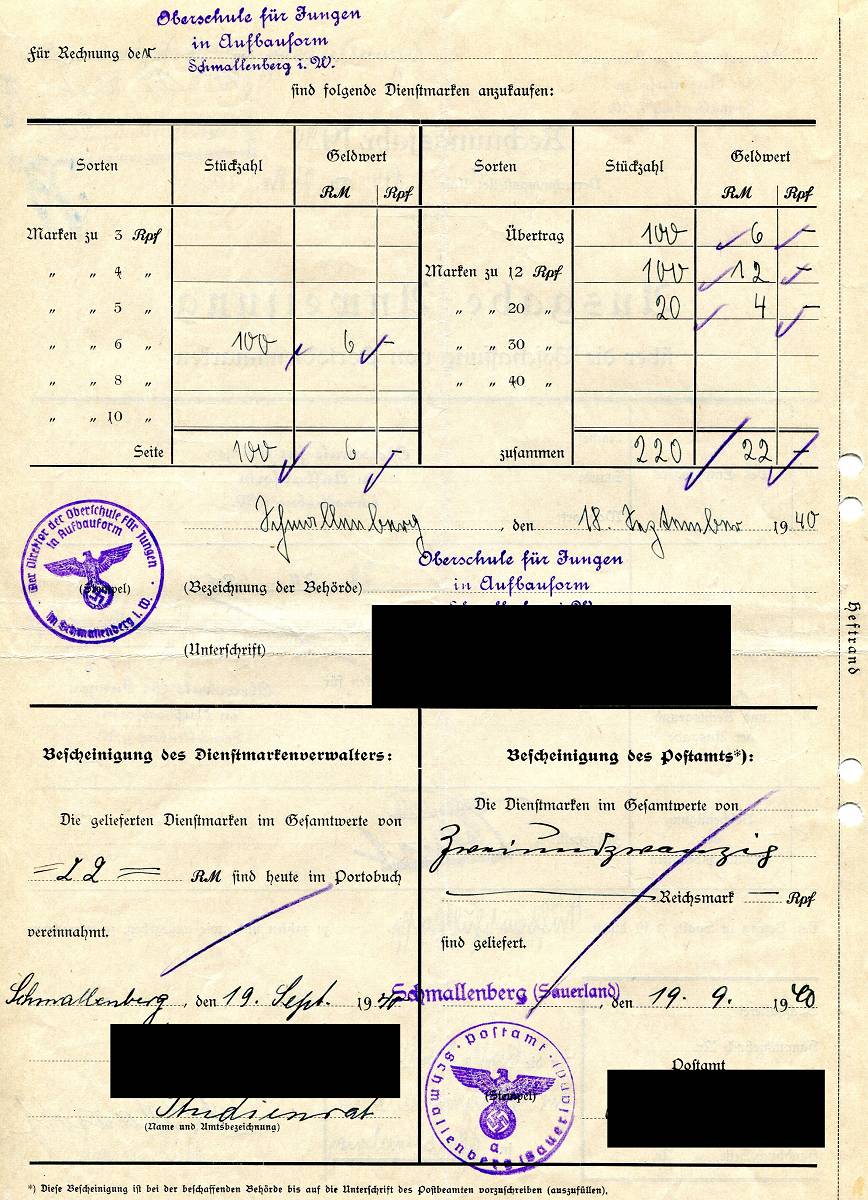 Oberschule für Jungen
in Aufbauform
Schmallenberg i. W.
Für Rechnung der
sind folgende Dienstmarken anzukaufen:
Sorten Stückzahl Geldwert Sorten Stückzahl Geldwert
RM Rpf RM Rpf
Marken zu 3 Rpf Übertrag 100 6 –
„ „ 4 „ Marken zu 12 Rpf 100 12 –
„ „ 5 „ „ „ 20 „ 20 4 –
„ „ 6 „ 100 6 – „ „ 30 „
„ „ 8 „ „ „ 40 „
„ „ 10 „
Seite 100 6 – zusammen 220 22 –
Schmallenberg, den 18. September 1940
Der Direktor der Oberschule für Jungen
in Aufbauform
im Schmallenberg i. W.
(Stempel)
Oberschule für Jungen
(Bezeichnung der Behörde) in Aufbauform
Schmallenberg i. W.
(Unterschrift)
Heftrand
Bescheinigung des Dienstmarkenverwalters:
Die gelieferten Dienstmarken im Gesamtwerte von
= 22 = RM sind heute im Portobuch
vereinnahmt.
Schmallenberg, den 19. Sept. 1940
Studienrat
(Name und Amtsbezeichnung)
Bescheinigung des Postamts*):
Die Dienstmarken im Gesamtwerte von
Zweiundzwanzig
— Reichsmark — Rpf
sind geliefert.
Schmallenberg (Sauerland), den 19. 9. 1940
Postamt
Schmallenberg (Sauerland)
a
(Stempel)
Postamt
*) Diese Bescheinigung ist bei der beschaffenden Behörde bis auf die Unterschrift des Postbeamten vorzuschreiben (auszufüllen).